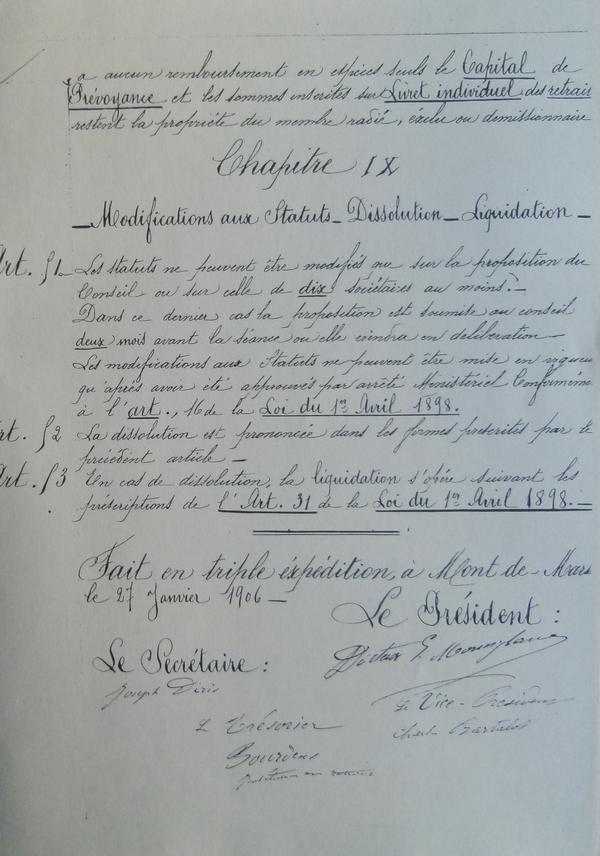 a aucun remboursement en espèces seuls le Capital de
Prévoyance et les sommes inscrites sur Livret individuel des retrai
restent la propriété du membre radié, exclu ou demissionnaire
Chapitre IX
_ Modifications aux Statuts _ Dissolution _ Liquidation _
Art. 51_ Les statuts ne peuvent être modifiés que sur la proposition du
Conseil ou sur celle de dix sociétaires au moins._
Dans ce dernier cas la proposition est soumise au conseil
deux mois avant la séance ou elle viendra en deliberation_
Les modifications aux Statuts ne peuvent être mise en vigueu
qu'après avoir été approuvés par arrêté Ministériel Conformém
à l'art., 16 de la Loi du 1er Avril 1898.
rt. 52 La dissolution est prononcée dans les formes prescrites par le
précédent article _
Art. 53 En cas de dissolution, la liquidation s'opère suivant les
préscriptions de l'Art. 31 de la Loi du 1er Avril 1898._
Fait en triple éxpédition, à Mont de-Mars
le 27 Janvier 1906 _
Le Président :
Le Secrétaire :
Joseph
Le Vice-Président
Le Trésorier